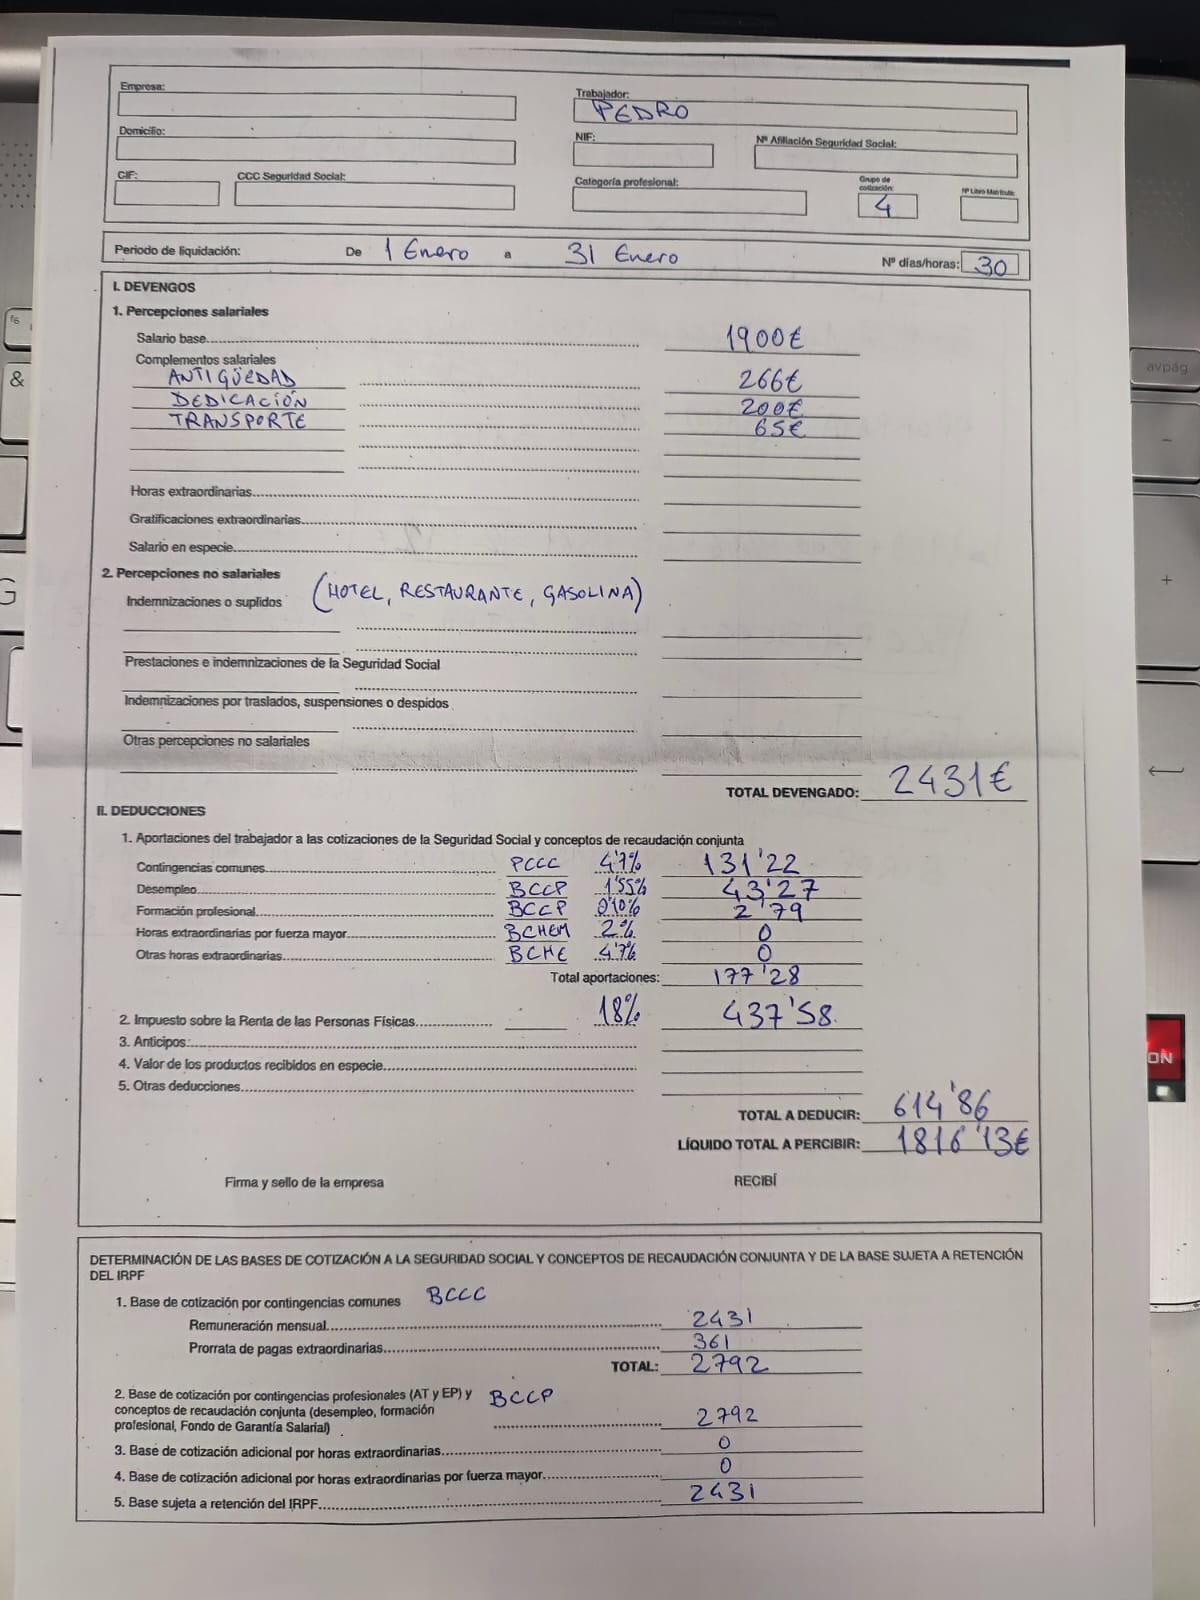 Empresa:
Trabajador:
PEDRO
Domicilio:
NIF:
Nº Afiliación Seguridad Social:
CIF:
CCC Seguridad Social:
Categoría profesional:
Grupo de cotización:
4
Nº Libro Matrícula:
Periodo de liquidación: De 1 Enero a 31 Enero Nº días/horas: 30
I. DEVENGOS
1. Percepciones salariales
Salario base 1900€
Complementos salariales
ANTIGÜEDAD 266€
DEDICACIÓN 200€
TRANSPORTE 65€
Horas extraordinarias
Gratificaciones extraordinarias
Salario en especie
2. Percepciones no salariales
Indemnizaciones o suplidos (HOTEL, RESTAURANTE, GASOLINA)
Prestaciones e indemnizaciones de la Seguridad Social
Indemnizaciones por traslados, suspensiones o despidos
Otras percepciones no salariales
TOTAL DEVENGADO: 2431€
II. DEDUCCIONES
1. Aportaciones del trabajador a las cotizaciones de la Seguridad Social y conceptos de recaudación conjunta
Contingencias comunes PCCC 4'7% 131'22
Desempleo BCCP 1'55% 43'27
Formación profesional BCCP 0'10% 2'79
Horas extraordinarias por fuerza mayor BCHEM 2% 0
Otras horas extraordinarias BCHE 4'7% 0
Total aportaciones: 177'28
2. Impuesto sobre la Renta de las Personas Físicas 18% 437'58
3. Anticipos:
4. Valor de los productos recibidos en especie
5. Otras deducciones
TOTAL A DEDUCIR: 614'86
LÍQUIDO TOTAL A PERCIBIR: 1816'13€
Firma y sello de la empresa RECIBÍ
DETERMINACIÓN DE LAS BASES DE COTIZACIÓN A LA SEGURIDAD SOCIAL Y CONCEPTOS DE RECAUDACIÓN CONJUNTA Y DE LA BASE SUJETA A RETENCIÓN
DEL IRPF
1. Base de cotización por contingencias comunes BCCC
Remuneración mensual 2431
Prorrata de pagas extraordinarias 361
TOTAL: 2792
2. Base de cotización por contingencias profesionales (AT y EP) y BCCP
conceptos de recaudación conjunta (desempleo, formación
profesional, Fondo de Garantía Salarial) 2792
3. Base de cotización adicional por horas extraordinarias 0
4. Base de cotización adicional por horas extraordinarias por fuerza mayor 0
5. Base sujeta a retención del IRPF 2431
f6
&
G
avpág
-
+
ON